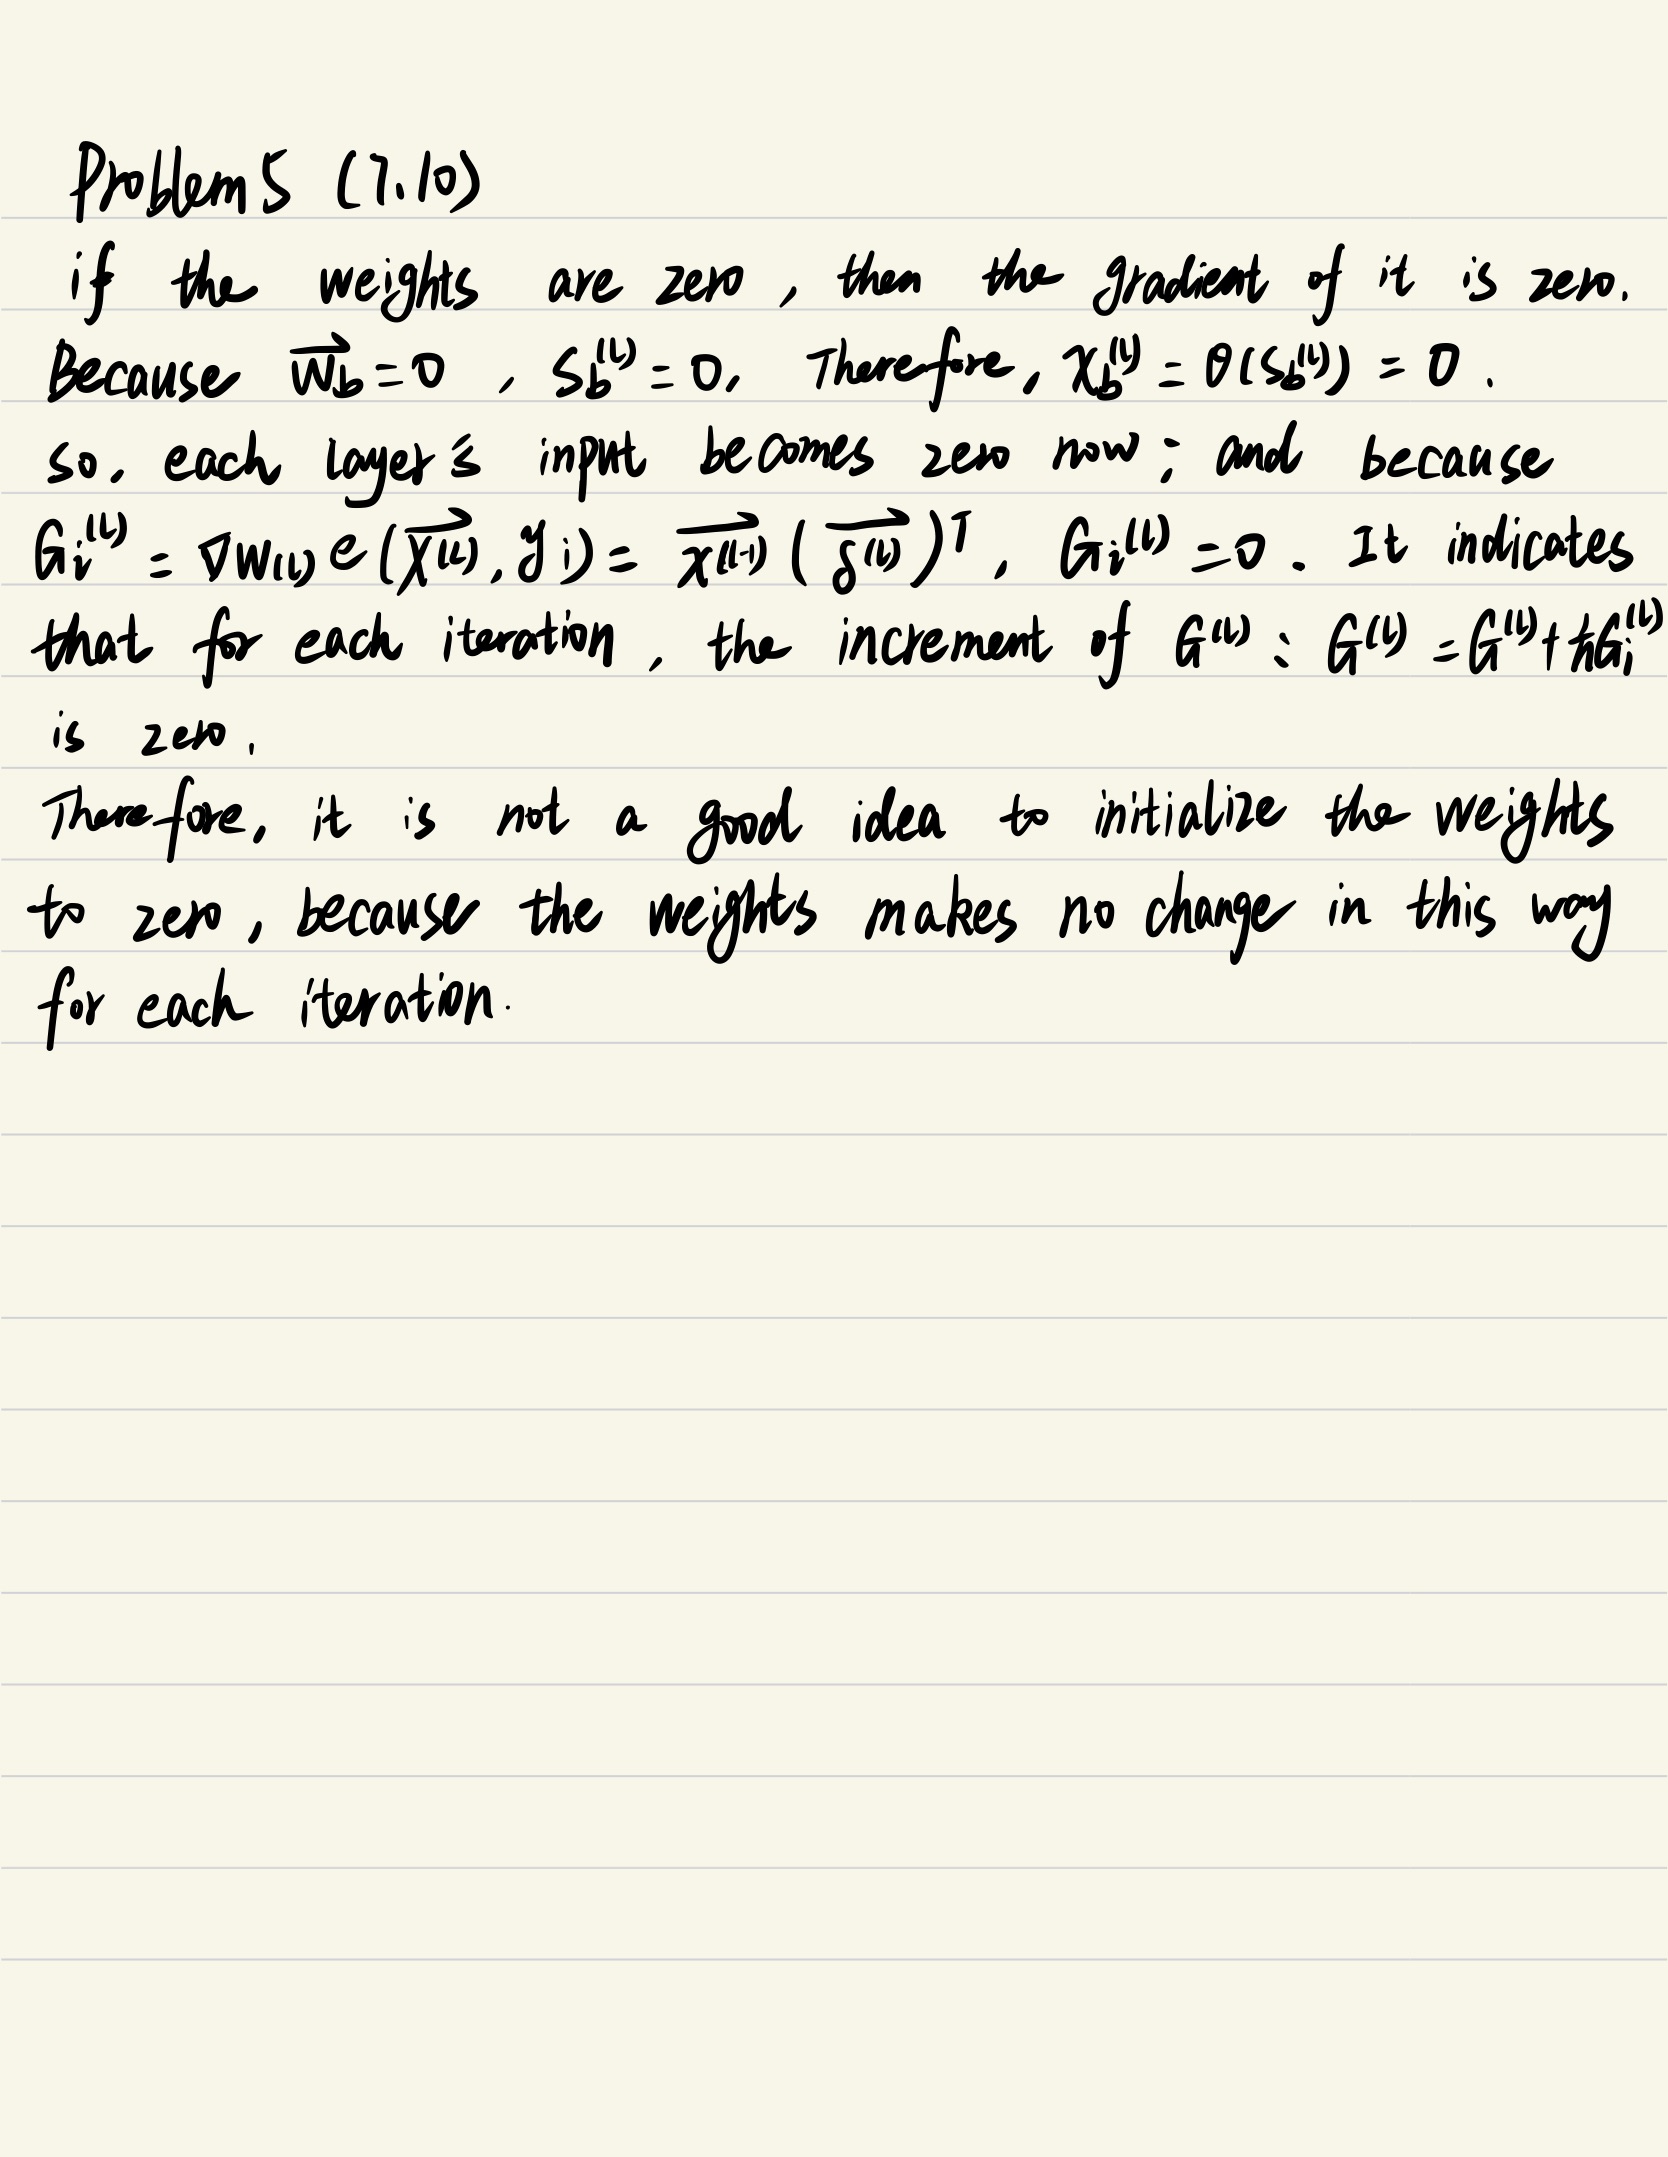 Problem 5 (7.10)
if the weights are zero, then the gradient of it is zero.
Because \vec{w}_b = 0, S_b^{(l)} = 0, Therefore, x_b^{(l)} = θ(S_b^{(l)}) = 0.
so, each layer's input becomes zero now; and because
G_i^{(l)} = ∇W_{(l)} e(\vec{X^{(L)}}, y_i) = \vec{x^{(l-1)}} (\vec{δ^{(l)}})^T, G_i^{(l)} = 0. It indicates
that for each iteration, the increment of G^{(l)}: G^{(l)} = G^{(l)} + \frac{1}{n}G_i^{(l)}
is zero.
Therefore, it is not a good idea to initialize the weights
to zero, because the weights makes no change in this way
for each iteration.